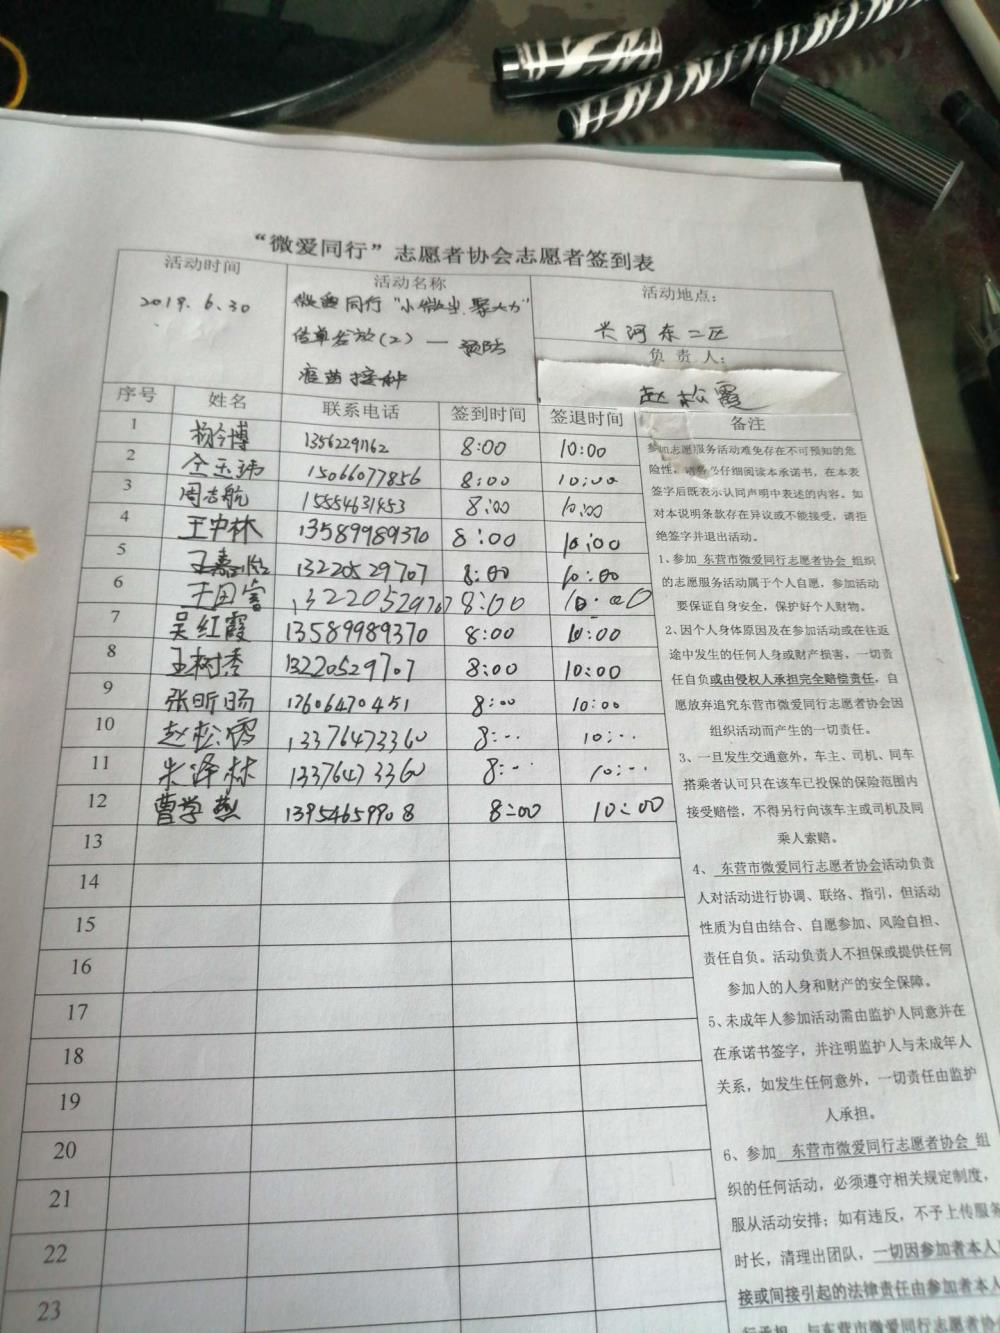 “微爱同行”志愿者协会志愿者签到表
活动时间
2019.6.30
活动名称
微爱同行“小微尘.聚大力”
传单发放(2)一预防
疫苗接种
活动地点:
长河东二区
负责人:
赵松霞
序号 姓名 联系电话 签到时间 签退时间 备注
1 杨今博 13562291162 8:00 10:00
2 仝玉琦 15066077856 8:00 10:00
3 周志航 15554631453 8:00 10:00
4 王中林 13589989370 8:00 10:00
5 王嘉 13220529707 8:00 10:00
6 13220529707 8:00 10:00
7 吴红霞 13589989370 8:00 10:00
8 王树秀 13220529707 8:00 10:00
9 张昕旸 17606470451 8:00 10:00
10 赵松霞 13376473360 8:·· 10:··
11 朱泽林 13376473360 8:·· 10:··
12 曹学燕 13954659908 8:00 10:00
13
14
15
16
17
18
19
20
21
22
23
参加志愿服务活动难免存在不可预知的危
险性,请务必仔细阅读本承诺书,在本表
签字后既表示认同声明中表述的内容。如
对本说明条款存在异议或不能接受,请拒
绝签字并退出活动。
1、参加 东营市微爱同行志愿者协会 组织
的志愿服务活动属于个人自愿,参加活动
要保证自身安全,保护好个人财物。
2、因个人身体原因及在参加活动或在往返
途中发生的任何人身或财产损害,一切责
任自负或由侵权人承担完全赔偿责任,自
愿放弃追究东营市微爱同行志愿者协会因
组织活动而产生的一切责任。
3、一旦发生交通意外,车主、司机、同车
搭乘者认可只在该车已投保的保险范围内
接受赔偿,不得另行向该车主或司机及同
乘人索赔。
4、 东营市微爱同行志愿者协会活动负责
人对活动进行协调、联络、指引,但活动
性质为自由结合、自愿参加、风险自担、
责任自负。活动负责人不担保或提供任何
参加人的人身和财产的安全保障。
5、未成年人参加活动需由监护人同意并在
在承诺书签字,并注明监护人与未成年人
关系,如发生任何意外,一切责任由监护
人承担。
6、参加 东营市微爱同行志愿者协会 组
织的任何活动,必须遵守相关规定制度,
服从活动安排;如有违反,不予上传服务
时长,清理出团队,一切因参加者本人
接或间接引起的法律责任由参加者本人
行承担,与东营市微爱同行志愿者协